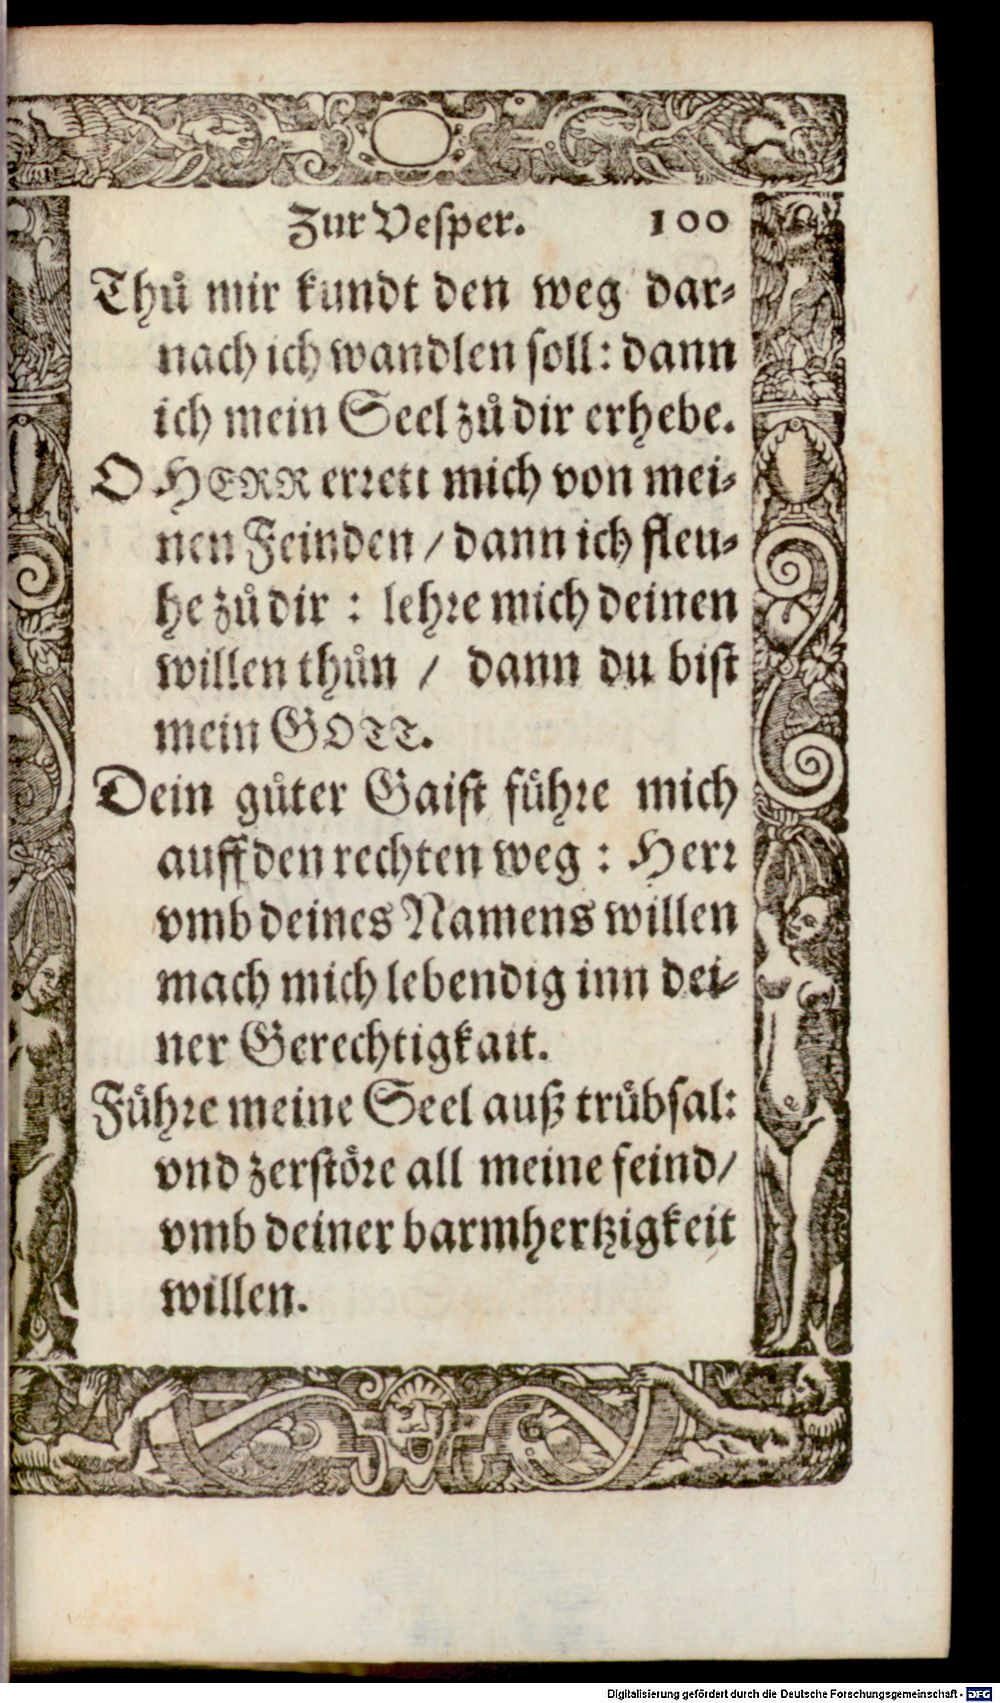 Zur Vesper. 100
Thů mir kundt den weg dar⸗
nach ich wandlen soll: dann
ich mein Seel zů dir erhebe.
O HERR errett mich von mei⸗
nen Feinden / dann ich fleu⸗
he zů dir : lehre mich deinen
willen thůn / dann du bist
mein GOTT.
Dein gůter Gaist fuͤhre mich
auff den rechten weg : Herr
vmb deines Namens willen
mach mich lebendig inn dei⸗
ner Gerechtigkait.
Fuͤhre meine Seel auß truͤbsal:
vnd zerstoͤre all meine feind/
vmb deiner barmhertzigkeit
willen.
Digitalisierung gefördert durch die Deutsche Forschungsgemeinschaft - DFG